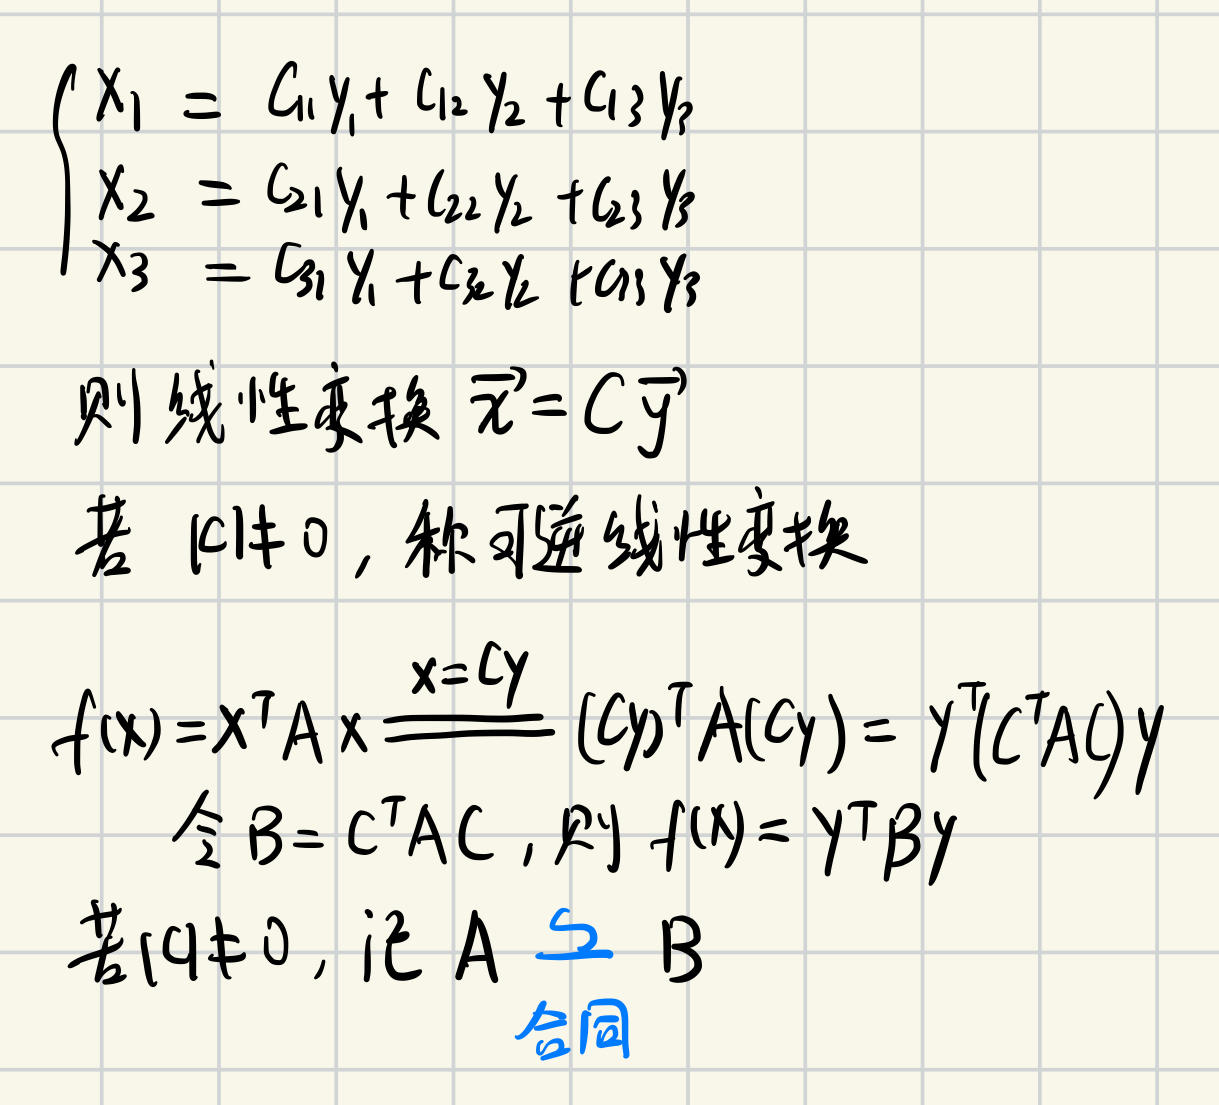 x₁ = C₁₁y₁ + C₁₂y₂ + C₁₃y₃
x₂ = C₂₁y₁ + C₂₂y₂ + C₂₃y₃
x₃ = C₃₁y₁ + C₃₂y₂ + C₃₃y₃
则线性变换 x⃗ = C y⃗
若 |C|≠0, 称可逆线性变换
x=Cy
f(x) = xᵀAx ═══ (Cy)ᵀA(Cy) = yᵀ(CᵀAC)y
令 B = CᵀAC, 则 f(x) = yᵀBy
若|C|≠0, 记 A ≃ B
合同